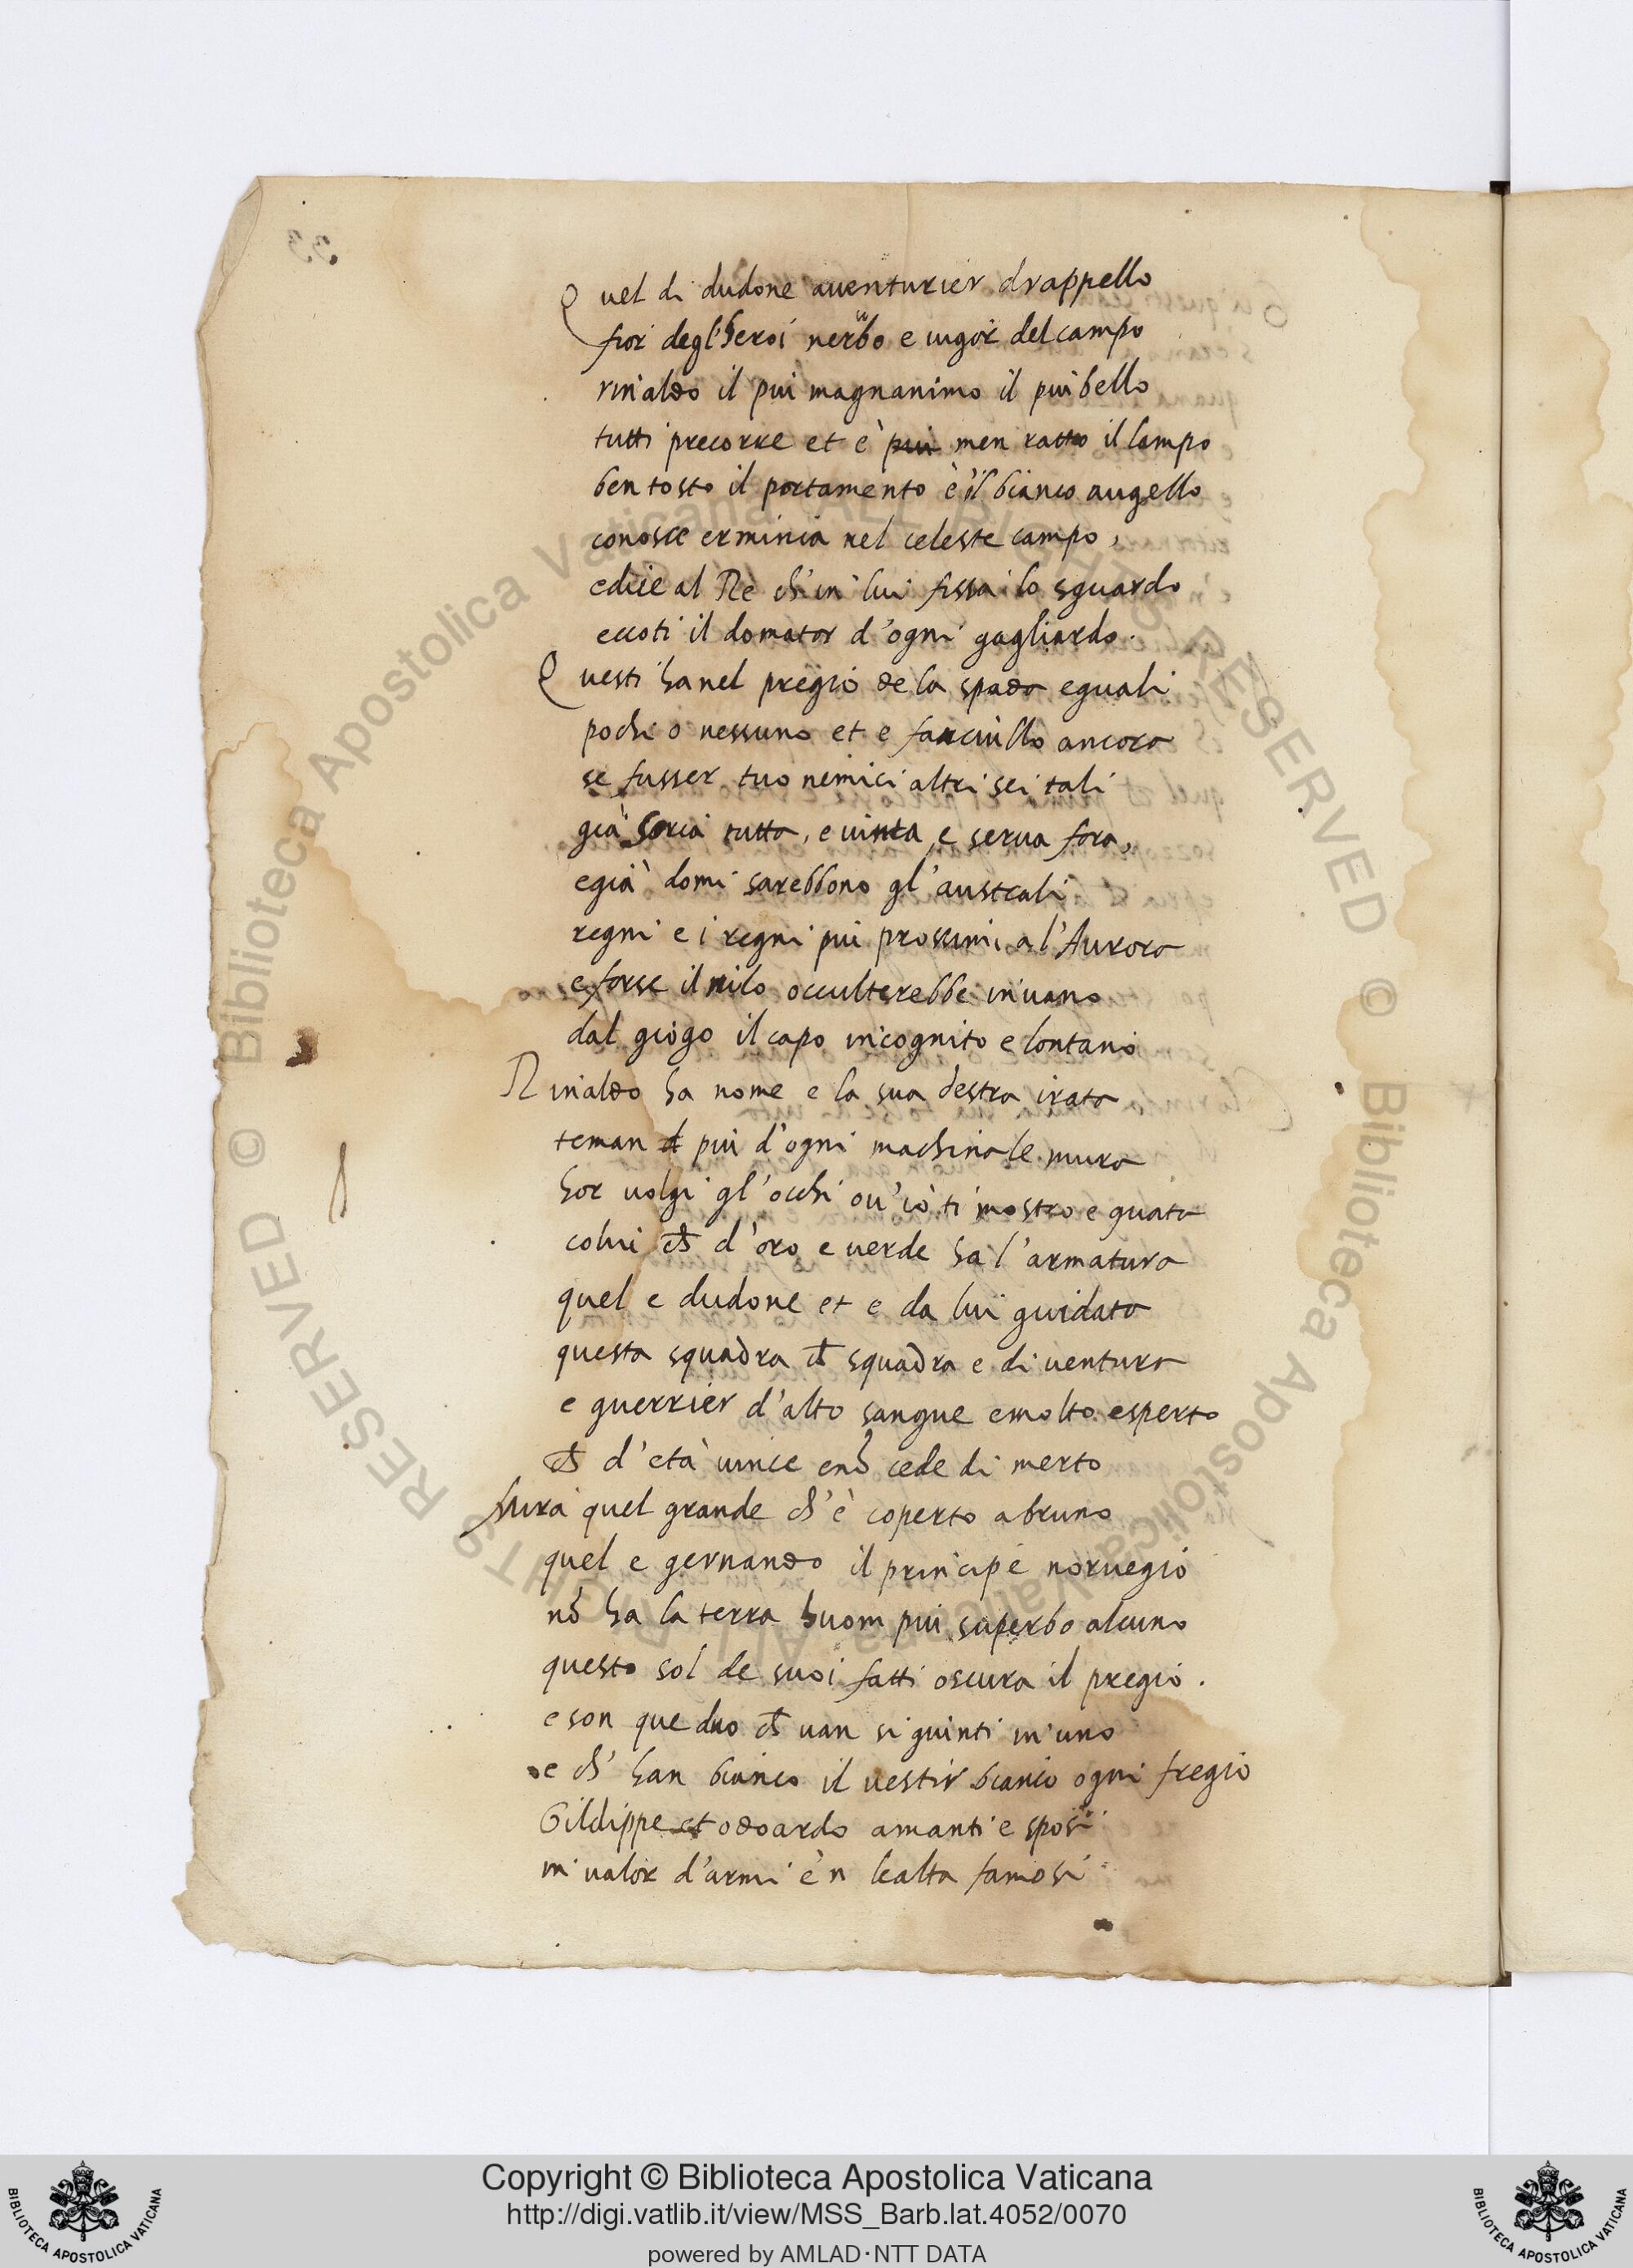 Quel di dudone auenturier drappello
fior degl'heroi nerbo e uigor del campo
rinaldo il piu magnanimo il piu bello
tutti precorre et è piu men ratto il lampo
ben tosto il portamento è'il bianco augello
conosce erminia nel celeste campo,
e dice al Rè ch'in lui fissa lo sguardo
eccoti il domator d'ogni gagliardo.
Questi ha nel pregio de la spada eguali
pochi o nessuno et e fanciullo ancora
se fusser tuo nemici altri sei tali
già Soria tutta, e uinta e serua fora,
e già domi sarebbono gl'australi
regni e i regni piu prossimi a l'Aurora
e forse il nilo occulterebbe in uano
dal giogo il capo incognito e lontano
Rinaldo ha nome e la sua destra irata
teman piu d'ogni machina le mura
hor uolgi gl'occhi ou'io ti mostro e guata
colui ch̃ d'oro e uerde ha l'armatura
quel e dudone et e da lui guidata
questa squadra ch̃ squadra e di uentura
e guerrier d'alto sangue e molto esperto
ch̃ d'età uince e nõ cede di merto
Mira quel grande ch'è coperto a bruno
quel e gernando il principe noruegio
nõ ha la terra huom piu superbo alcuno
questo sol de suoi fatti oscura il pregio.
e son que duo ch̃ uan si giunti in uno
e ch' han bianco il uestir bianco ogni fregio
Gildippe et odoardo amanti e sposi
in ualor d'armi e'n lealta famosi
Copyright © Biblioteca Apostolica Vaticana
http://digi.vatlib.it/view/MSS_Barb.lat.4052/0070
powered by AMLAD·NTT DATA
BIBLIOTECA APOSTOLICA VATICANA
BIBLIOTECA APOSTOLICA VATICANA